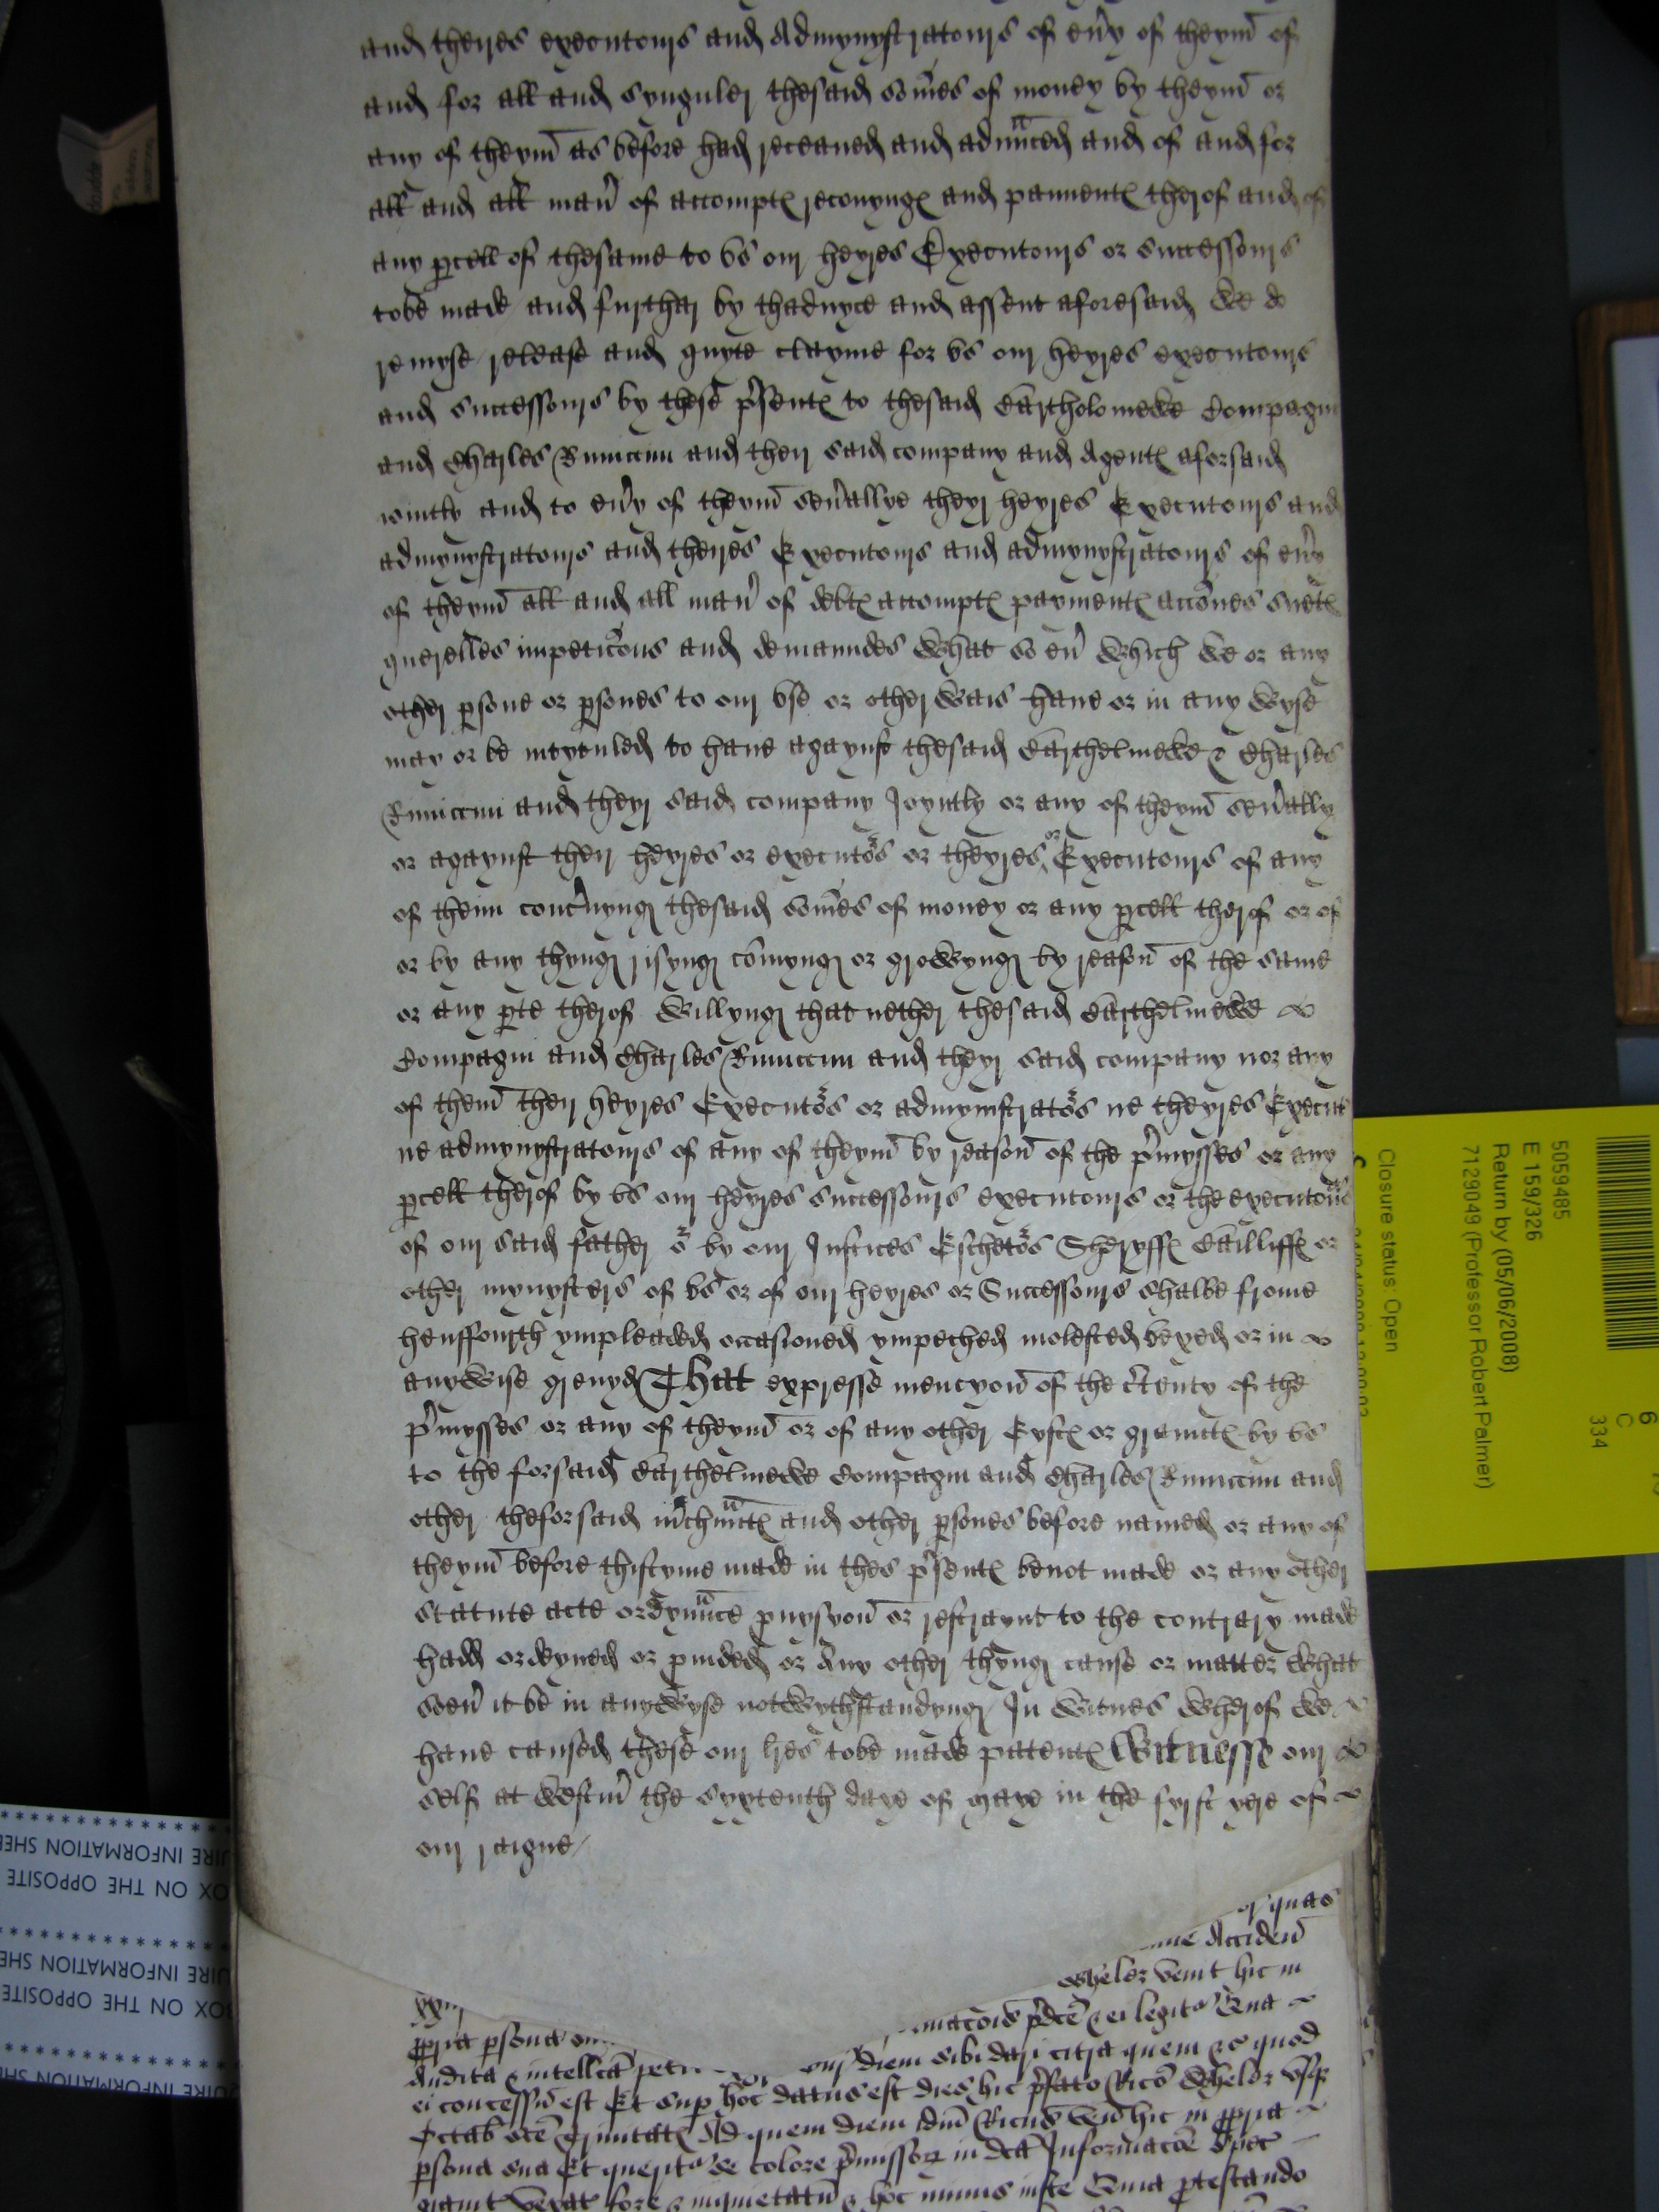 and theires executours and Admynystratours of eu'y of theym of
and for all and synguler thesaid somes of money by theym or
any of theym as before had receaued and aduaunced and of and for
all and all man' of accomptes reconynges and paimentes therof and of
any parcell of thesame to vs our heyres Executours or successours
tobe made and further by thaduyce and assent aforesaid we do
remyse release and quyte clayme for vs our heyres executours
and successours by these p'sentes to thesaid Bartholomewe Compagni
and Charles and their said company and Agentes aforsaid
iointly and to eu'y of theym seu'allye theyr heyres Executours and
admynystratours and theires Executours and admynystratours of eu'y
of theym all and all man' of debtes accomptes paymentes accones suetes
querelles impeticons and demaundes what so eu' which we or any
other persone or persones to our vse or other wais haue or in any wyse
may or be to haue agaynst thesaid Barthelmewe & Charles
and theyr said company Joyntly or any of theym seu'ally
or agaynst their heyres or executors or theyres or Executours of any
of theim conc'nyng thesaid somes of money or any parcell therof or of
or by any thyng risyng comyng or growyng by reason of the same
or any parte therof willyng that nether thesaid Barthelmewe
Compagni and Charles and theyr said company nor any
of them their heyres Executors or admynistrators ne theyres Execut
ne admynystratours of any of theym by reason of the p'mysses or any
parcell therof by vs our heyres successours executours or the executours
of our said father or by our Justices Eschetors Sheryffes Bailliffes or
other mynysters of vs or of our heyres or Successours shalbe frome
hensfourth ympleaded occasioned ympeched molested vexed or in
anywise greuyd That expresse mencyon of the c'tenty of the
p'mysses or any of theym or of any other gyftes or grauntes by vs
to the forsaid Barthelmewe Compagni and Charles and
other theforsaid m'chauntes and other persones before named or any of
theym before thistyme made in thes p'sentes benot made or any other
statute acte ordynaunce prouysyon or restraynt to the contrary made
hadd ordeyned or prouided or Any other thyng cause or matter what
soeu' it be in anywyse notwythstandyng / In witnes wherof we
haue caused these our lres tobe made patentes Witnesse our
self at Westm' the syxtenth daye of maye in the fyrst yere of
our raigne /
quas
Acciden
Wheler venit hic in
ppria psona
diem sibi dari citra quem &c quod
Audita & intellca
ei concessu est Et sup hoc datus est dies hic p'fato Rico Wheler vsq
Octab sce Trinitat Ad quem diem idm Ricus ven hic in ppria
psona sua Et queritr de colore p'missor in dca Informacoe
vexat fore & inquietatu & hoc minus iuste Quia ptestando
5059485
E 159/326
Return by (05/06/2008)
7129049 (Professor Robert Palmer)
Closure status: Open
6
C
334
UIRE INFORMATION SHEE
OX ON THE OPPOSITE
UIRE INFORMATION SHE
BOX ON THE OPPOSITE
QUIRE INFORMATION SH